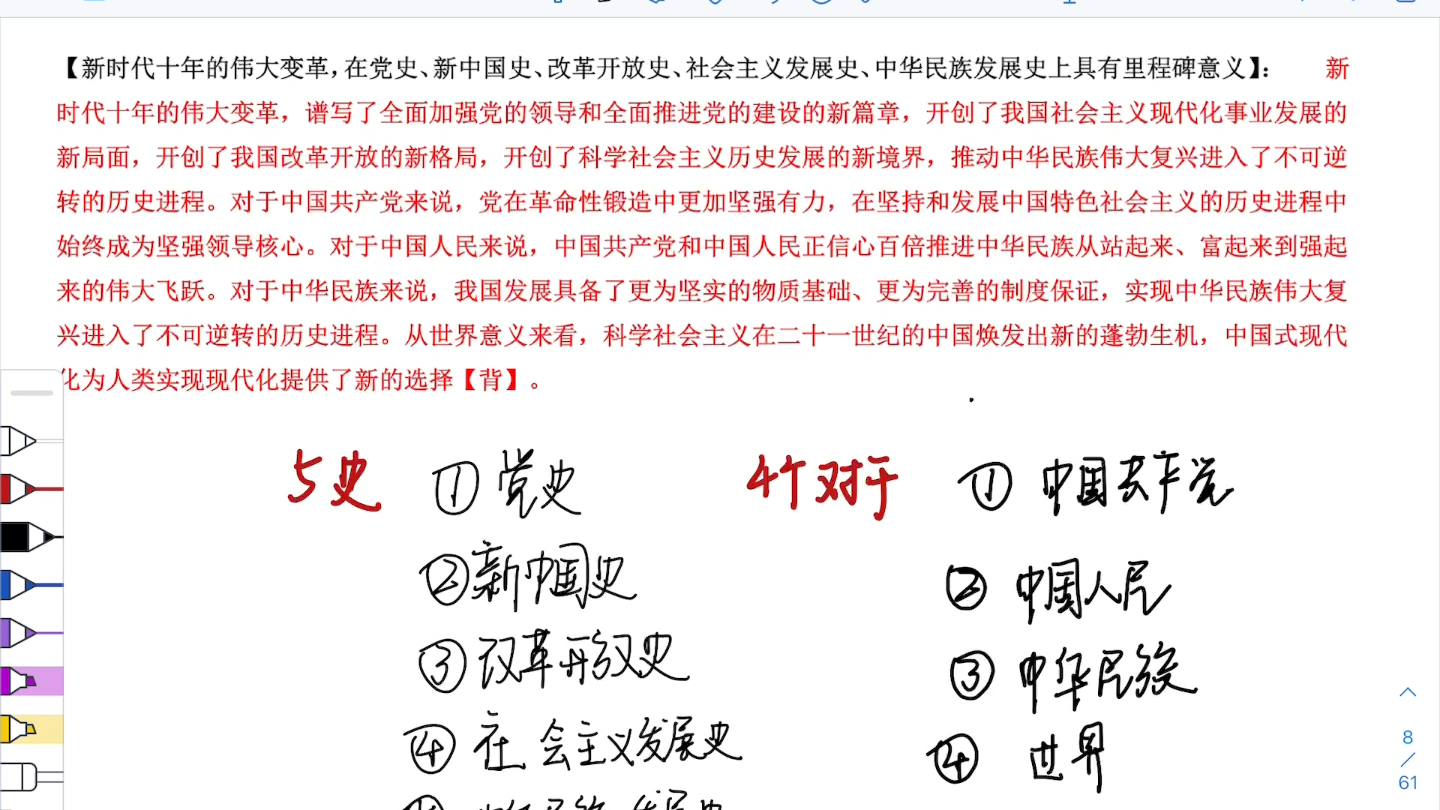 【新时代十年的伟大变革，在党史、新中国史、改革开放史、社会主义发展史、中华民族发展史上具有里程碑意义】： 新
时代十年的伟大变革，谱写了全面加强党的领导和全面推进党的建设的新篇章，开创了我国社会主义现代化事业发展的
新局面，开创了我国改革开放的新格局，开创了科学社会主义历史发展的新境界，推动中华民族伟大复兴进入了不可逆
转的历史进程。对于中国共产党来说，党在革命性锻造中更加坚强有力，在坚持和发展中国特色社会主义的历史进程中
始终成为坚强领导核心。对于中国人民来说，中国共产党和中国人民正信心百倍推进中华民族从站起来、富起来到强起
来的伟大飞跃。对于中华民族来说，我国发展具备了更为坚实的物质基础、更为完善的制度保证，实现中华民族伟大复
兴进入了不可逆转的历史进程。从世界意义来看，科学社会主义在二十一世纪的中国焕发出新的蓬勃生机，中国式现代
化为人类实现现代化提供了新的选择【背】。
5史 ①党史
②新中国史
③改革开放史
④社会主义发展史
4个对于 ①中国共产党
②中国人民
③中华民族
④世界
8
/
61